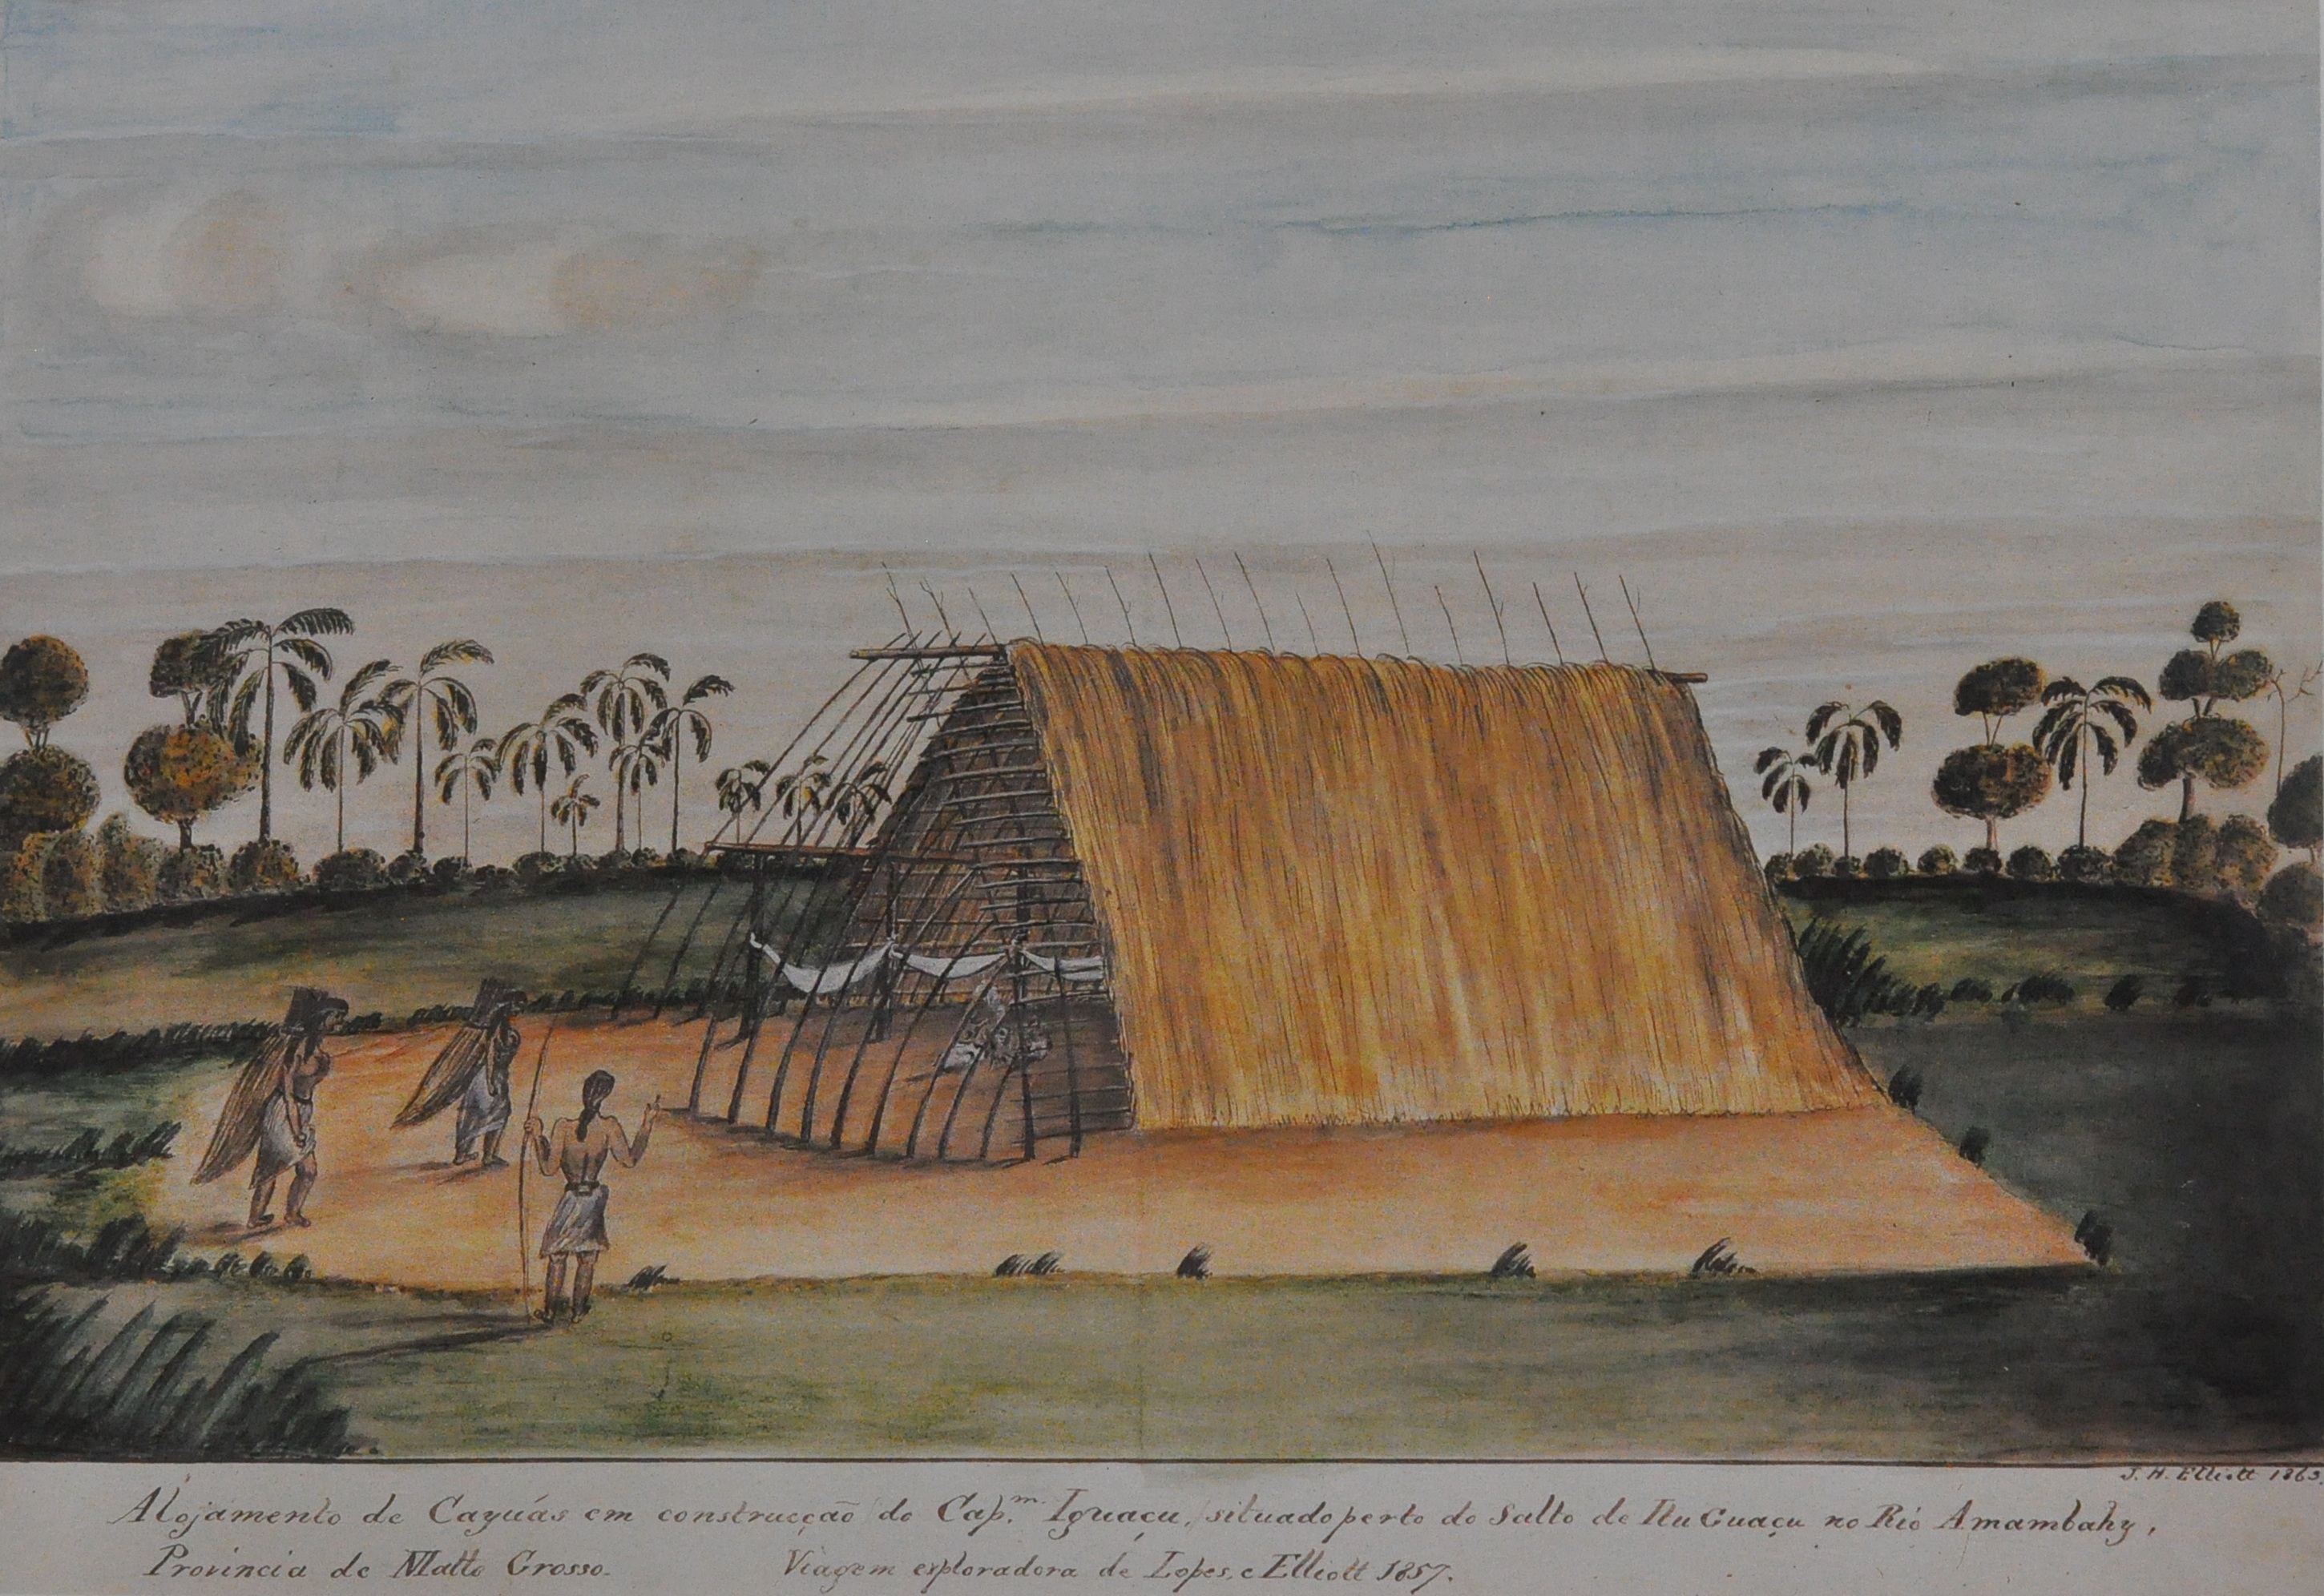 J. H. Elliott 1863.
Alojamento de Cayuás em construcção do Cap.m Iguaçu, situado perto do Salto de Itu Guaçu no Rio Amambahy,
Provincia de Matto Grosso. Viagem exploradora de Lopes, e Elliott 1857.